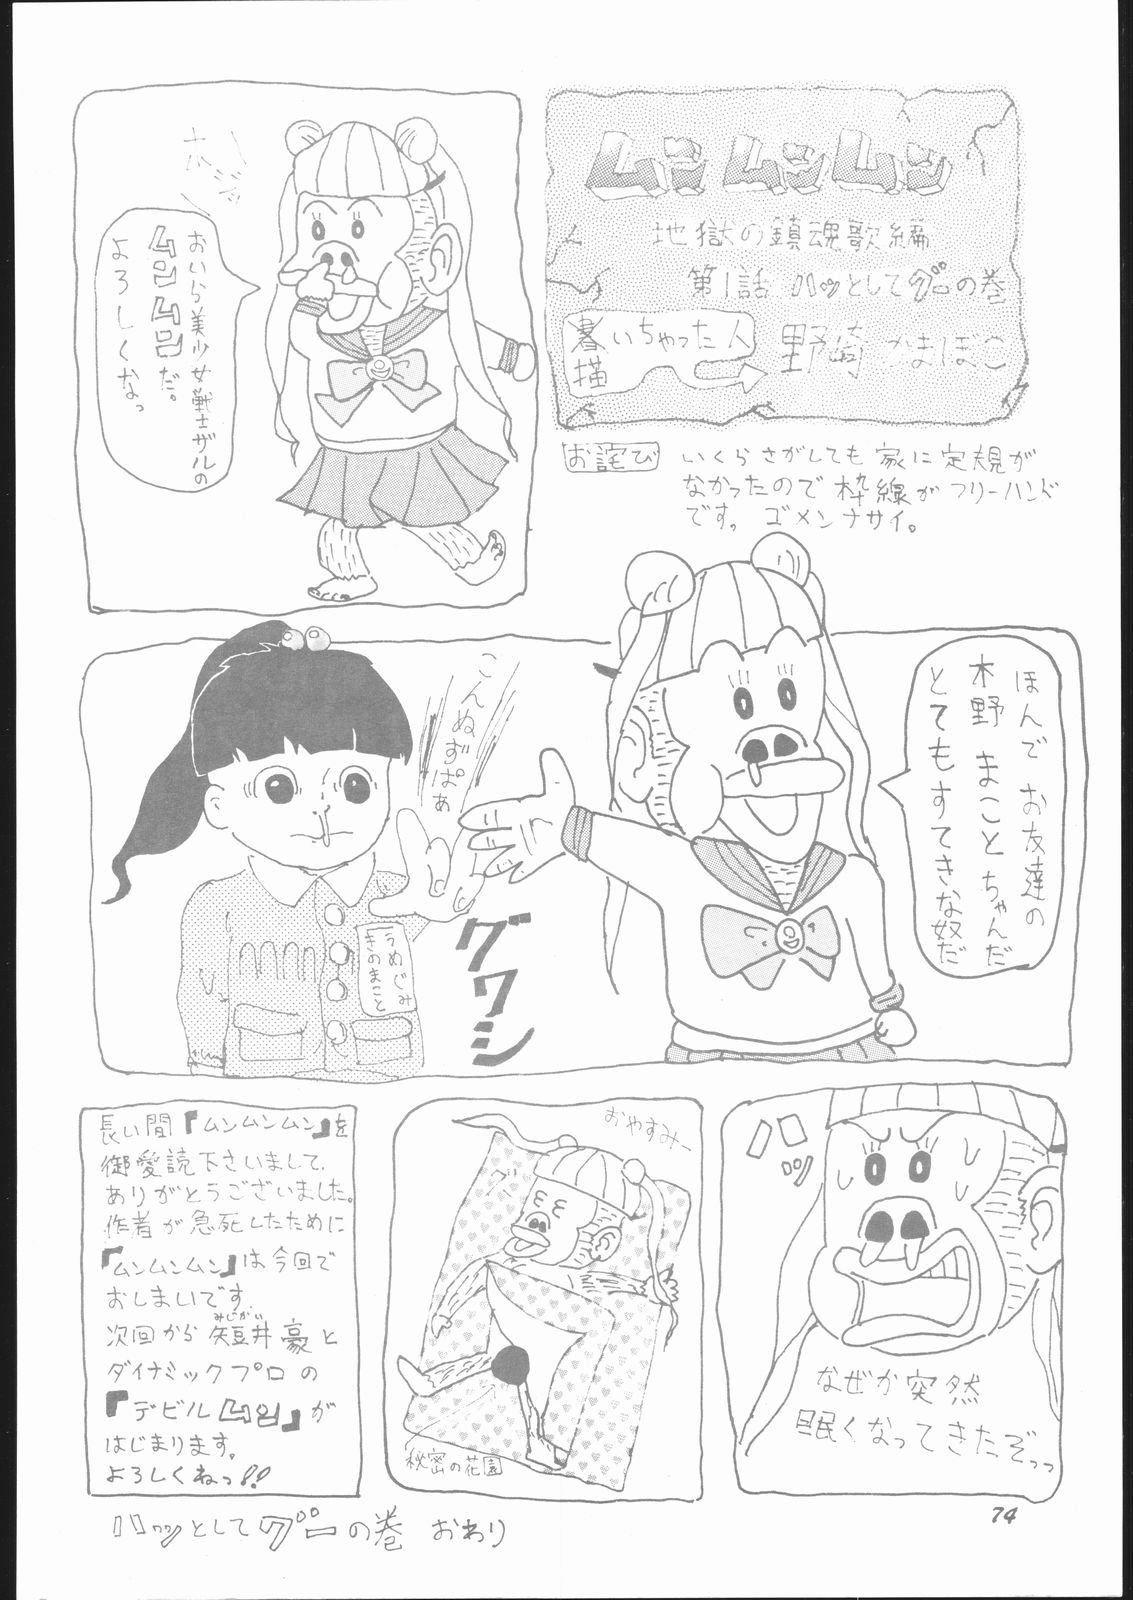 ムンムンムン
地獄の鎮魂歌編
第1話 ハッとしてグーの巻
書いちゃった人
描
野崎かまぼこ
お詫び
いくらさがしても家に定規が
なかったので枠線がフリーハンド
です。ゴメンナサイ。
おいら美少女戦士ザルの
ムンムンだ。
よろしくなっ
ほんでお友達の
木野まことちゃんだ
とてもすてきな奴だ
こんぬずぱぁ
グワシ
うめぐみ
きのまこと
ハッ
なぜか突然
眠くなってきたぞっっ
おやすみー
グー
秘密の花園
長い間『ムンムンムン』を
御愛読下さいまして、
ありがとうございました。
作者が急死したために
『ムンムンムン』は今回で
おしまいです。
みじかい
次回から矩井豪と
ダイナミックプロの
『デビルムン』が
はじまります。
よろしくねっ!!
ハッとしてグーの巻 おわり
74